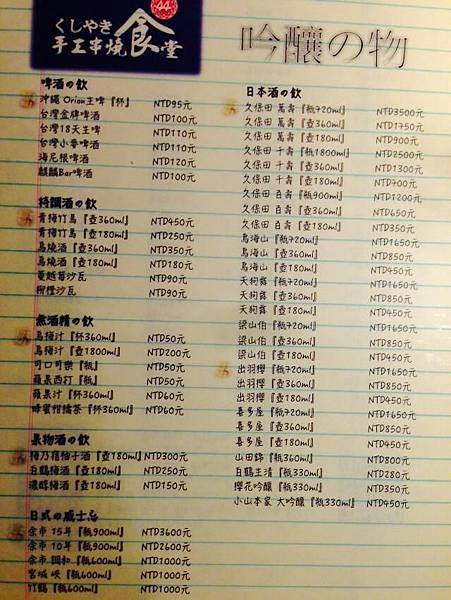 44
くしやき
手工串燒 食堂
吟釀の物
啤酒の飲
沖繩 Orion生啤『杯』 NTD95元
台灣金牌啤酒 NTD100元
台灣18天生啤 NTD110元
台灣小麥啤酒 NTD110元
海尼根啤酒 NTD120元
麒麟Bar啤酒 NTD100元
特調酒の飲
青梅竹馬『壺360ml』 NTD450元
青梅竹馬『壺180ml』 NTD250元
烏燒酒『壺360ml』 NTD350元
烏燒酒『壺180ml』 NTD180元
蔓越莓沙瓦 NTD90元
柳橙沙瓦 NTD90元
無酒精の飲
烏梅汁『杯360ml』 NTD50元
烏梅汁『壺1800ml』 NTD200元
可口可樂『瓶』 NTD50元
蘋果西打『瓶』 NTD50元
蘋果汁『杯360ml』 NTD60元
蜂蜜柑橘茶『杯360ml』 NTD60元
果物酒の飲
梅乃宿柚子酒『壺180ml』NTD300元
白鶴梅酒『壺180ml』 NTD250元
濃醇梅酒『壺180ml』 NTD150元
日式の威士忌
余市 15年『瓶900ml』 NTD3600元
余市 10年『瓶900ml』 NTD2600元
余市 調和『瓶600ml』 NTD1000元
宮城 峽『瓶600ml』 NTD1000元
竹鶴『瓶600ml』 NTD1000元
日本酒の飲
久保田 萬壽『瓶720ml』 NTD3500元
久保田 萬壽『壺360ml』 NTD1750元
久保田 萬壽『壺180ml』 NTD900元
久保田 千壽『瓶1800ml』 NTD2500元
久保田 千壽『壺360ml』 NTD1300元
久保田 千壽『壺180ml』 NTD700元
久保田 百壽『瓶900ml』 NTD1200元
久保田 百壽『壺360ml』 NTD650元
久保田 百壽『壺180ml』 NTD350元
鳥海山『瓶720ml』 NTD1650元
鳥海山『壺360ml』 NTD850元
鳥海山『壺180ml』 NTD450元
天狗舞『瓶720ml』 NTD1650元
天狗舞『壺360ml』 NTD850元
天狗舞『壺180ml』 NTD450元
梁山伯『瓶720ml』 NTD1650元
梁山伯『壺360ml』 NTD850元
梁山伯『壺180ml』 NTD450元
出羽櫻『瓶720ml』 NTD1650元
出羽櫻『壺360ml』 NTD850元
出羽櫻『壺180ml』 NTD450元
喜多屋『瓶720ml』 NTD1650元
喜多屋『壺360ml』 NTD850元
喜多屋『壺180ml』 NTD450元
山田錦『瓶360ml』 NTD800元
白鶴生清『瓶330ml』 NTD200元
櫻花吟釀『瓶330ml』 NTD350元
小山本家 大吟釀『瓶330ml』 NTD450元